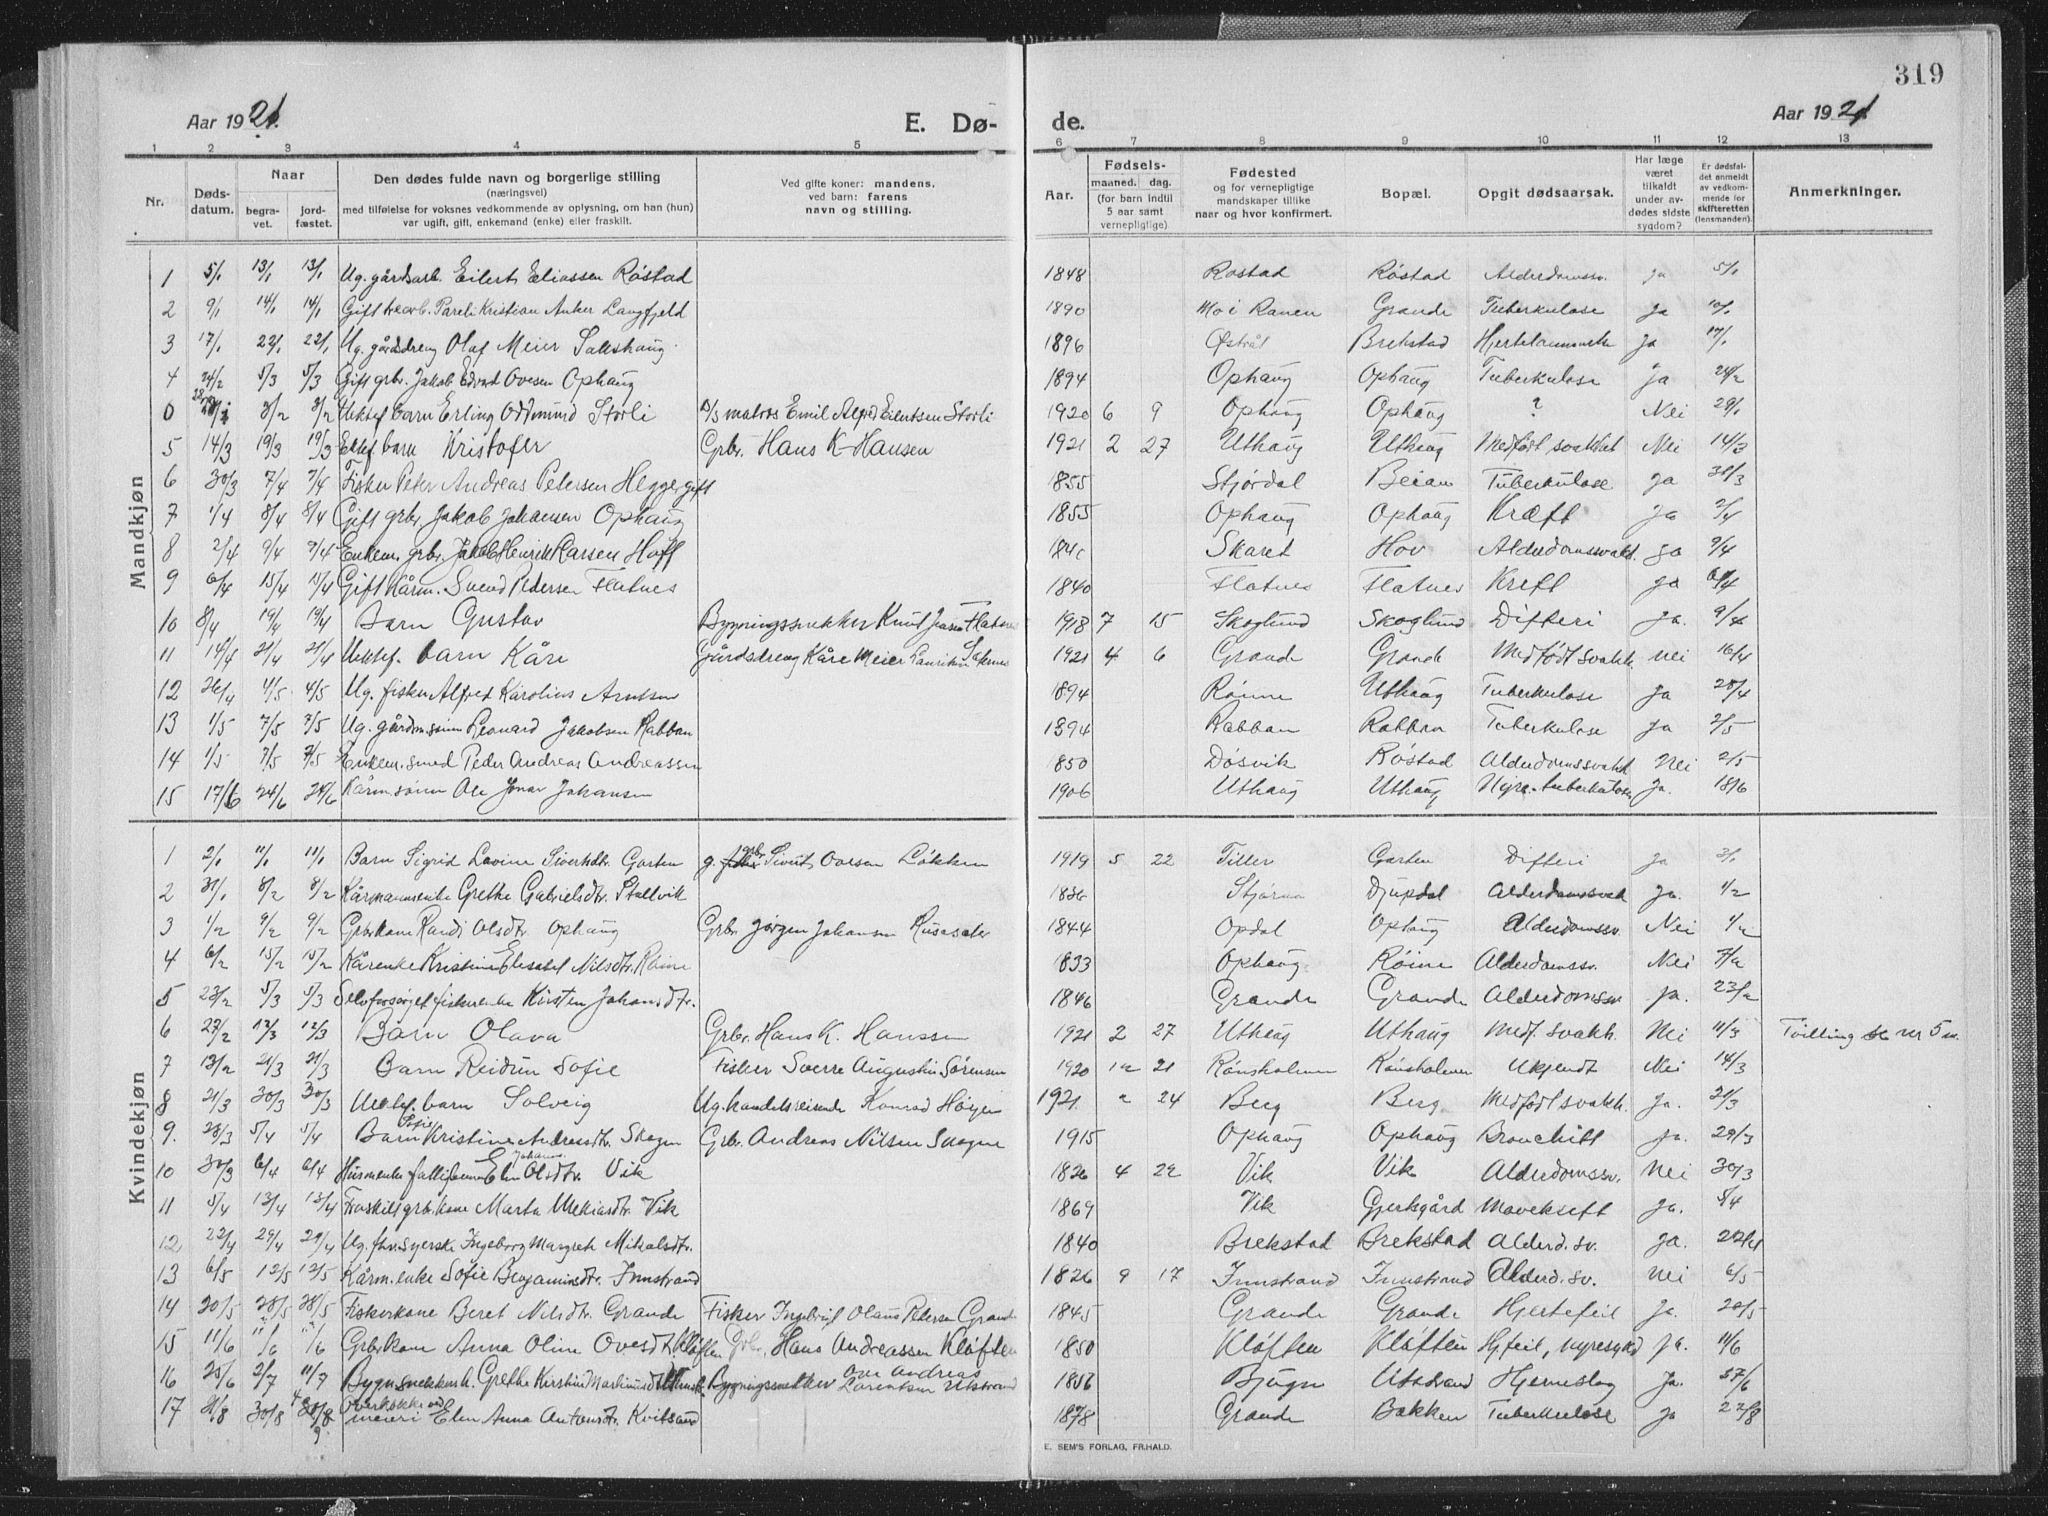 319
Aar 1921. E. Dø- de. Aar 1921
1 2 3 4 5 6 7 8 9 10 11 12 13
Nr. Døds-datum. Naar begravet. jordfæstet. Den dødes fulde navn og borgerlige stilling (næringsvei) med tilføielse for voksnes vedkommende av oplysning, om han (hun) var ugift, gift, enkemand (enke) eller fraskilt. Ved gifte koner: mandens. ved barn: farens navn og stilling. Aar. Fødsels- maaned. dag. (for barn indtil 5 aar samt vernepligtige) Fødested og for vernepligtige mandskaper tillike naar og hvor konfirmert. Bopæl. Opgit dødsaarsak. Har læge været tilkaldt under avdødes sidste sygdom? Er dødsfaldet anmeldt av vedkommende for skifteretten (lensmanden). Anmerkninger.
Mandkjøn
1 5/1 13/1 13/1 Ug. gårdsarb. Eilert Eliassen Røstad 1848 Røstad Røstad Alderdomssv. ja 5/1
2 9/1 14/1 14/1 Gift Pareli Kristian Anker Langfjeld 1890 Mo i Ranen Grande Tuberkulose ja 10/1
3 17/1 22/1 22/1 Ug. gårdsdreng Olaf Meier Sakshaug 1896 Østråt Brekstad Hjertelammelse ja 17/1
4 24/2 5/3 5/3 Gift grbr. Jakob Edvard Ovesen Ophaug 1894 Ophaug Ophaug Tuberkulose ja 24/2
0 28/1 3/2 3/2 Uektef barn Erling Oddmund Storli matros Emil Alfred Eilertsen Storli 1920 6 9 Ophaug Ophaug ? Nei 29/1
5 14/3 19/3 19/3 Ektef barn Kristofer Grbr. Hans K. Hansen 1921 2 27 Uthaug Uthaug Medfødt svakhet Nei 14/3
6 30/3 7/4 7/4 Fisker Peter Andreas Petersen Hegge gift 1855 Stjørdal Beian Tuberkulose ja 31/3
7 1/4 8/4 8/4 Gift grbr. Jakob Johansen Ophaug 1855 Ophaug Ophaug Kræft ja 2/4
8 2/4 9/4 9/4 Enkem. grbr. Jakob Henrik Larsen Hoff Skaret Hov Alderdomssvakh. ja 2/4
9 6/4 15/4 15/4 Gift Kårm. Svend Pedersen Flatnes 1840 Flatnes Flatnes Kreft ja 6/4
10 8/4 19/4 19/4 Barn Gustav Bygningssnekker Knut Jensen 1918 7 15 Skoglund Skoglund Difteri ja. 9/4
11 14/4 21/4 21/4 Uektef. barn Kåre Gårdsdreng Kåre Meier 1921 4 6 Grande Grande Medfødt svakh. nei 16/4
12 26/4 4/5 4/5 Ug. fisker Alfred Karolius Arntsen 1894 Røinne Uthaug Tuberkulose ja 28/4
13 1/5 7/5 7/5 Ug. gårdm.sønn Leonard Jakobsen Rabban 1894 Rabban Rabban Tuberkulose ja 2/5
14 1/5 7/5 7/5 Enkem. smed Peder Andreas Andreassen 1850 Døsvik Røstad Alderdomssvakh Nei 2/5
15 17/6 24/6 24/6 Kårm.sønn Ole Jonar Johansen 1906 Uthaug Uthaug Nyre-tuberkulose ja. 18/6
Kvindekjøn
1 2/1 11/1 11/1 Barn Sigrid Lovine Sivertsdtr. Garten g. grbr. Sivert Ovesen Løkken 1919 5 22 Tiller Garten Difteri ja 3/1
2 31/1 8/2 8/2 Kårmannsenke Grethe Gabrielsdtr. Stallvik 1836 Stjørna Djupdal Alderdomssvakh ja. 1/2
3 1/2 9/2 9/2 Grbr.kone Randi Olsdtr. Ophaug Grbr. Jørgen Johansen 1844 Opdal Ophaug Alderdomssv. Nei 1/2
4 6/2 15/2 15/2 Kårenke Kristine Elisabet Nilsdtr. Røine 1833 Ophaug Røine Alderdomssv. Nei 7/2
5 23/2 5/3 5/3 Selvforsørget fiskerenke Kirsten Johansdtr. 1846 Grande Grande Alderdomssv ja. 23/2
6 27/2 12/3 12/3 Barn Olava Grbr. Hans K. Hanssen 1921 2 27 Uthaug Uthaug Medf. svakh. Nei 11/3 Tvilling se nr 5 m.
7 13/2 21/3 21/3 Barn Reidun Sofie Fisker Sverre Augustin Sørensen 1920 12 21 Rønsholmen Rønsholmen Ukjendt Nei 14/3
8 21/3 30/3 30/3 Uektef. barn Solveig Ug. handelsreisende Konrad 1921 2 24 Berg Berg Medfødt svakh. ja. 21/3
9. 28/3 5/4 5/4 Barn Sofie Kristine Andreasdtr. Skogen Grbr. Andreas Nilsen Skogen 1915 Ophaug Ophaug Bronchitt ja. 29/3
10 30/3 6/4 6/4 Husmenke Elen Johanna Olsdtr. Vik 1826 4 22 Vik Vik Alderdomssv. Nei 30/3
11 5/4 13/4 13/4 Fraskilt grbr.kone Marta Vik 1869 Vik Gjerksgård Mavekreft ja. 5/4
12 22/4 29/4 29/4 Ug. fhv. syerske Ingeborg Margreth Mikalsdtr. 1840 Brekstad Brekstad Alderd. sv. ja. 22/4
13 6/5 12/5 12/5 Kårm.enke Sofie Benjaminsdtr. Innstrand 1826 9 17 Innstrand Innstrand Alderd. sv. nei 6/5
14 20/5 28/5 28/5 Fiskerkone Beret Nilsdtr. Grande Fisker Ingebrigt Olaus Petersen Grande 1845 Grande Grande Hjertefeil ja. 20/5
15 11/6 11/6 Grbrkone Anna Oline Ovesdtr. Kløften Grbr. Hans Andreassen Kløften 1850 Kløften Kløften Hj.feil, nyresykd ja. 11/6
16 25/6 2/7 11/7 Bygn.snekkerk. Grethe Kirstine Martinusdtr Bygningssnekker Ove Andreas Lorentsen Utstrand 1856 Bjugn Utstrand Hjerneslag ja. 27/6
17 21/8 30/8 meieri Elen Anna Antonsdtr. Kvitsand 1878 Grande Bakken Tuberkulose ja 22/8
E. SEM'S FORLAG, FR.HALD.